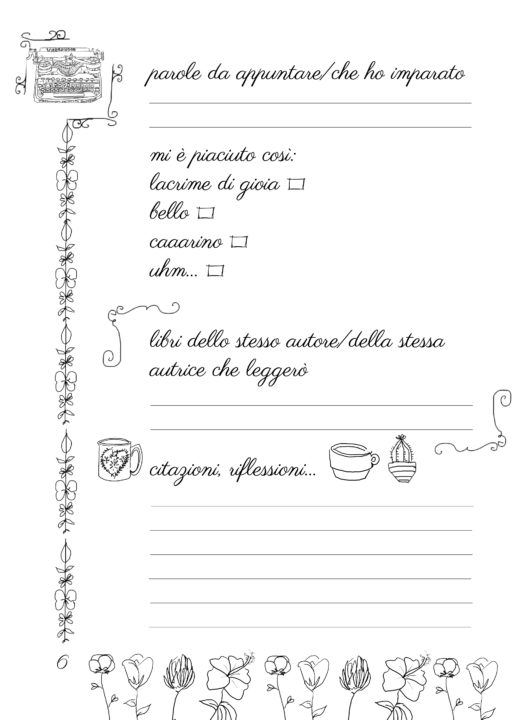 parole da appuntare/che ho imparato
mi è piaciuto così:
lacrime di gioia
bello
caaarino
uhm...
libri dello stesso autore/della stessa
autrice che leggerò
citazioni, riflessioni...
6